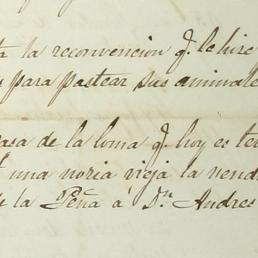 ta la reconvencion q. le hice
s para pastear sus animale
casa de la loma q. hoy es te
una noria vieja la vend
de la Peña á Dn Andres